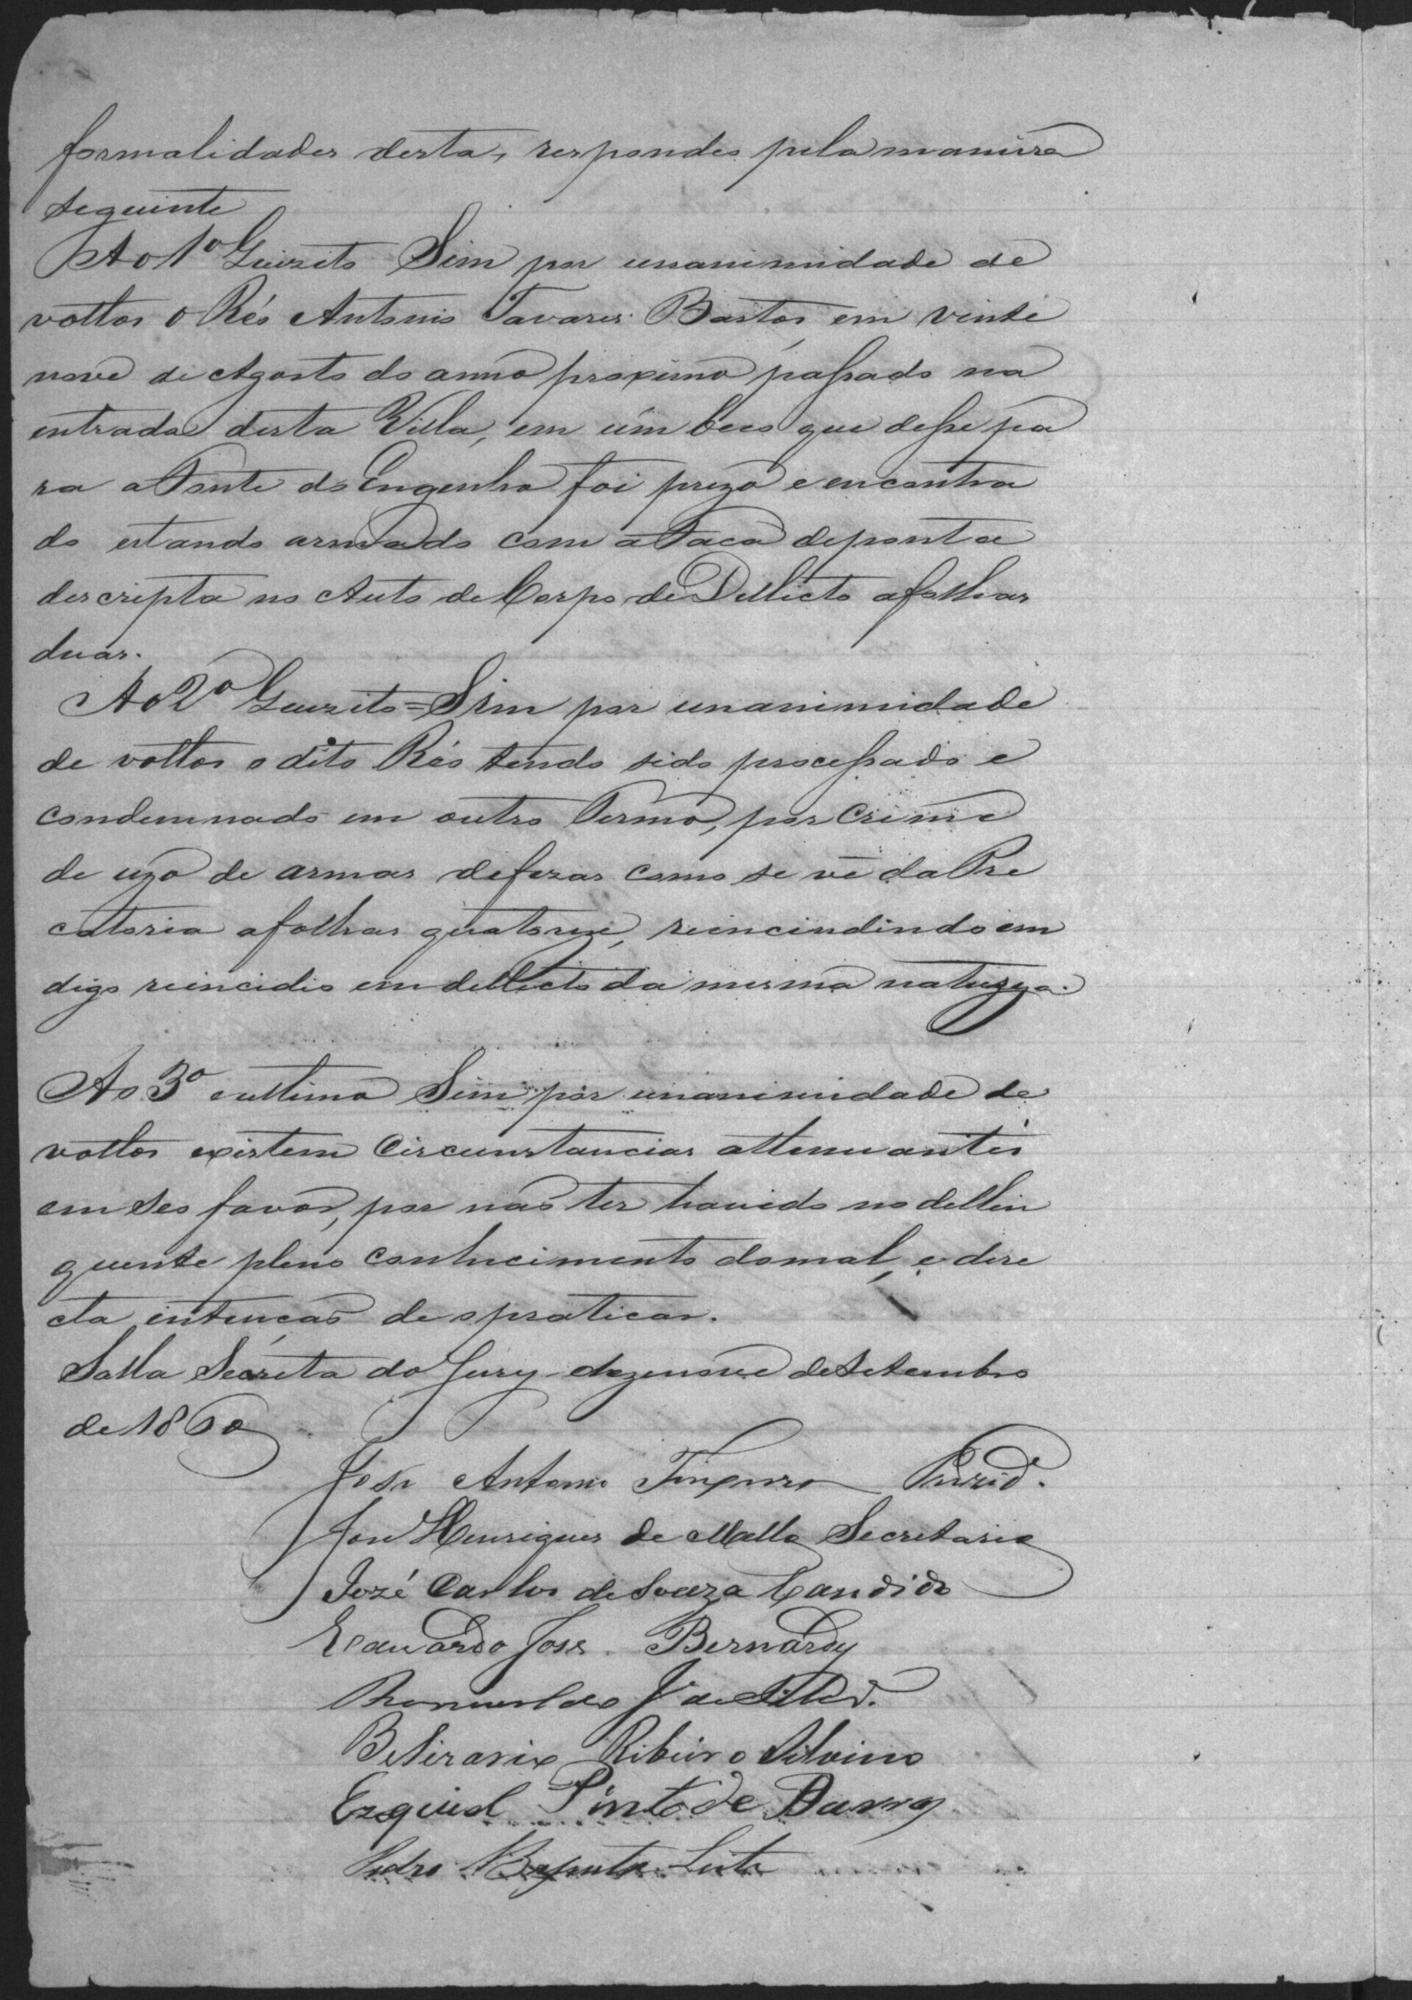 formalidades desta, respondeo pela maneira
seguinte
Ao 1º Quizito Sim por unanimidade de
vottos o Réo Antonio Tavares Bastos, em vinte
nove de Agosto do anno proximo passado na
entrada desta Villa, em um beco que desse pa
ra a Ponte do Engenho foi prezo e encontra
do estando armado com a Faca de ponta
descripta no Auto de Corpo de Dellicto a folhas
duas.
Ao 2º Quizito = Sim por unanimidade
de vottos o dito Réo tendo sido processado e
condemnado em outro Termo, por crime
de uzo de armas defezas como se vê da Pre
catoria a folhas quatorze, reincindindo em
digo reincidio em dellicto da mesma natureza.
Ao 3º e ultimo Sim por unanimidade de
vottos existem Circunstancias attenuantes
em seo favor, por não ter havido no dellin
quente pleno conhecimento do mal, e dire
cta intenção de o praticar.
Salla Secreta do Jury dezenove de Setembro
de 1860
José Antonio Prezid.
José Henriques de Mello Secretario
José Carlos de Souza Candido
Eduardo José Bernardy
Romualdo J. da Silva.
Ribeiro Silvino
Ezequiel Pinto de Barros
Pedro Baptista Leite